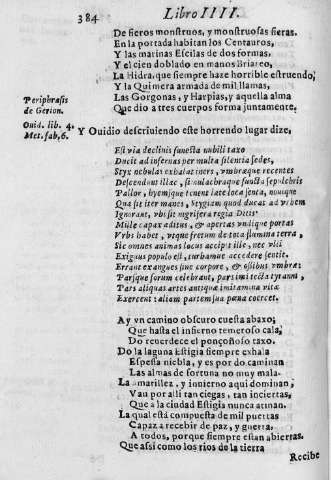 384 Libro IIII.
De fieros monstruos, y monstruosas fieras.
En la portada habitan los Centauros,
Y las marinas Escilas de dos formas.
Y el cien doblado en manos Briareo,
La Hidra, que siempre haze horrible estruendo,
Y la Quimera armada de mil llamas,
Periphrasis
de Gerion.
Las Gorgonas, y Harpias, y aquella alma
Que dio a tres cuerpos forma juntamente.
Ouid. lib. 4.
Met. fab, 6.
Y Ouidio descriuiendo este horrendo lugar dize,
Est via decliuis funesta nubili taxo
Ducit ad infernas per muta silentia sedes,
Styx nebulas exhalat iners, vmbræque recentes
Descendunt illac, simulachraque functa sepulchris
Pallor, hyemsque tenent late loca senta, nouique
Qua sit iter manes, Stygiam quod ducat ad vrbem
Ignorant, vbi sit nigri fera regia Ditis
Mille capax aditus, & apertas vndique portas
Vrbs habet, vtque fretum de tota flumina terra,
Sic omnes animas locus accipit ille, nec vlli
Exiguus populo est, turbamue accedere sentit.
Errant exangues sine corpore, & ossibus vmbræ:
Parsque forum celebrant, pars imi tecta tyranni,
Pars aliquas artes antiquæ imitamina vitæ
Exercent: aliam partem sua pœna coercet.
Ay vn camino obscuro cuesta abaxo,
Que hasta el infierno temeroso cala,
Do reuerdece el ponçoñoso taxo.
Do la laguna Estigia siempre exhala
Espessa niebla, y es por do caminan
Las almas de fortuna no muy mala.
La amarillez, y inuierno aqui dominan,
Van por alli tan ciegas, tan inciertas,
Que a la ciudad Estigia nunca atinan.
La qual está compuesta de mil puertas
Capaz a recebir de paz, y guerra,
A todos, porque siempre estan abiertas.
Que assi como los rios de la tierra
Recibe